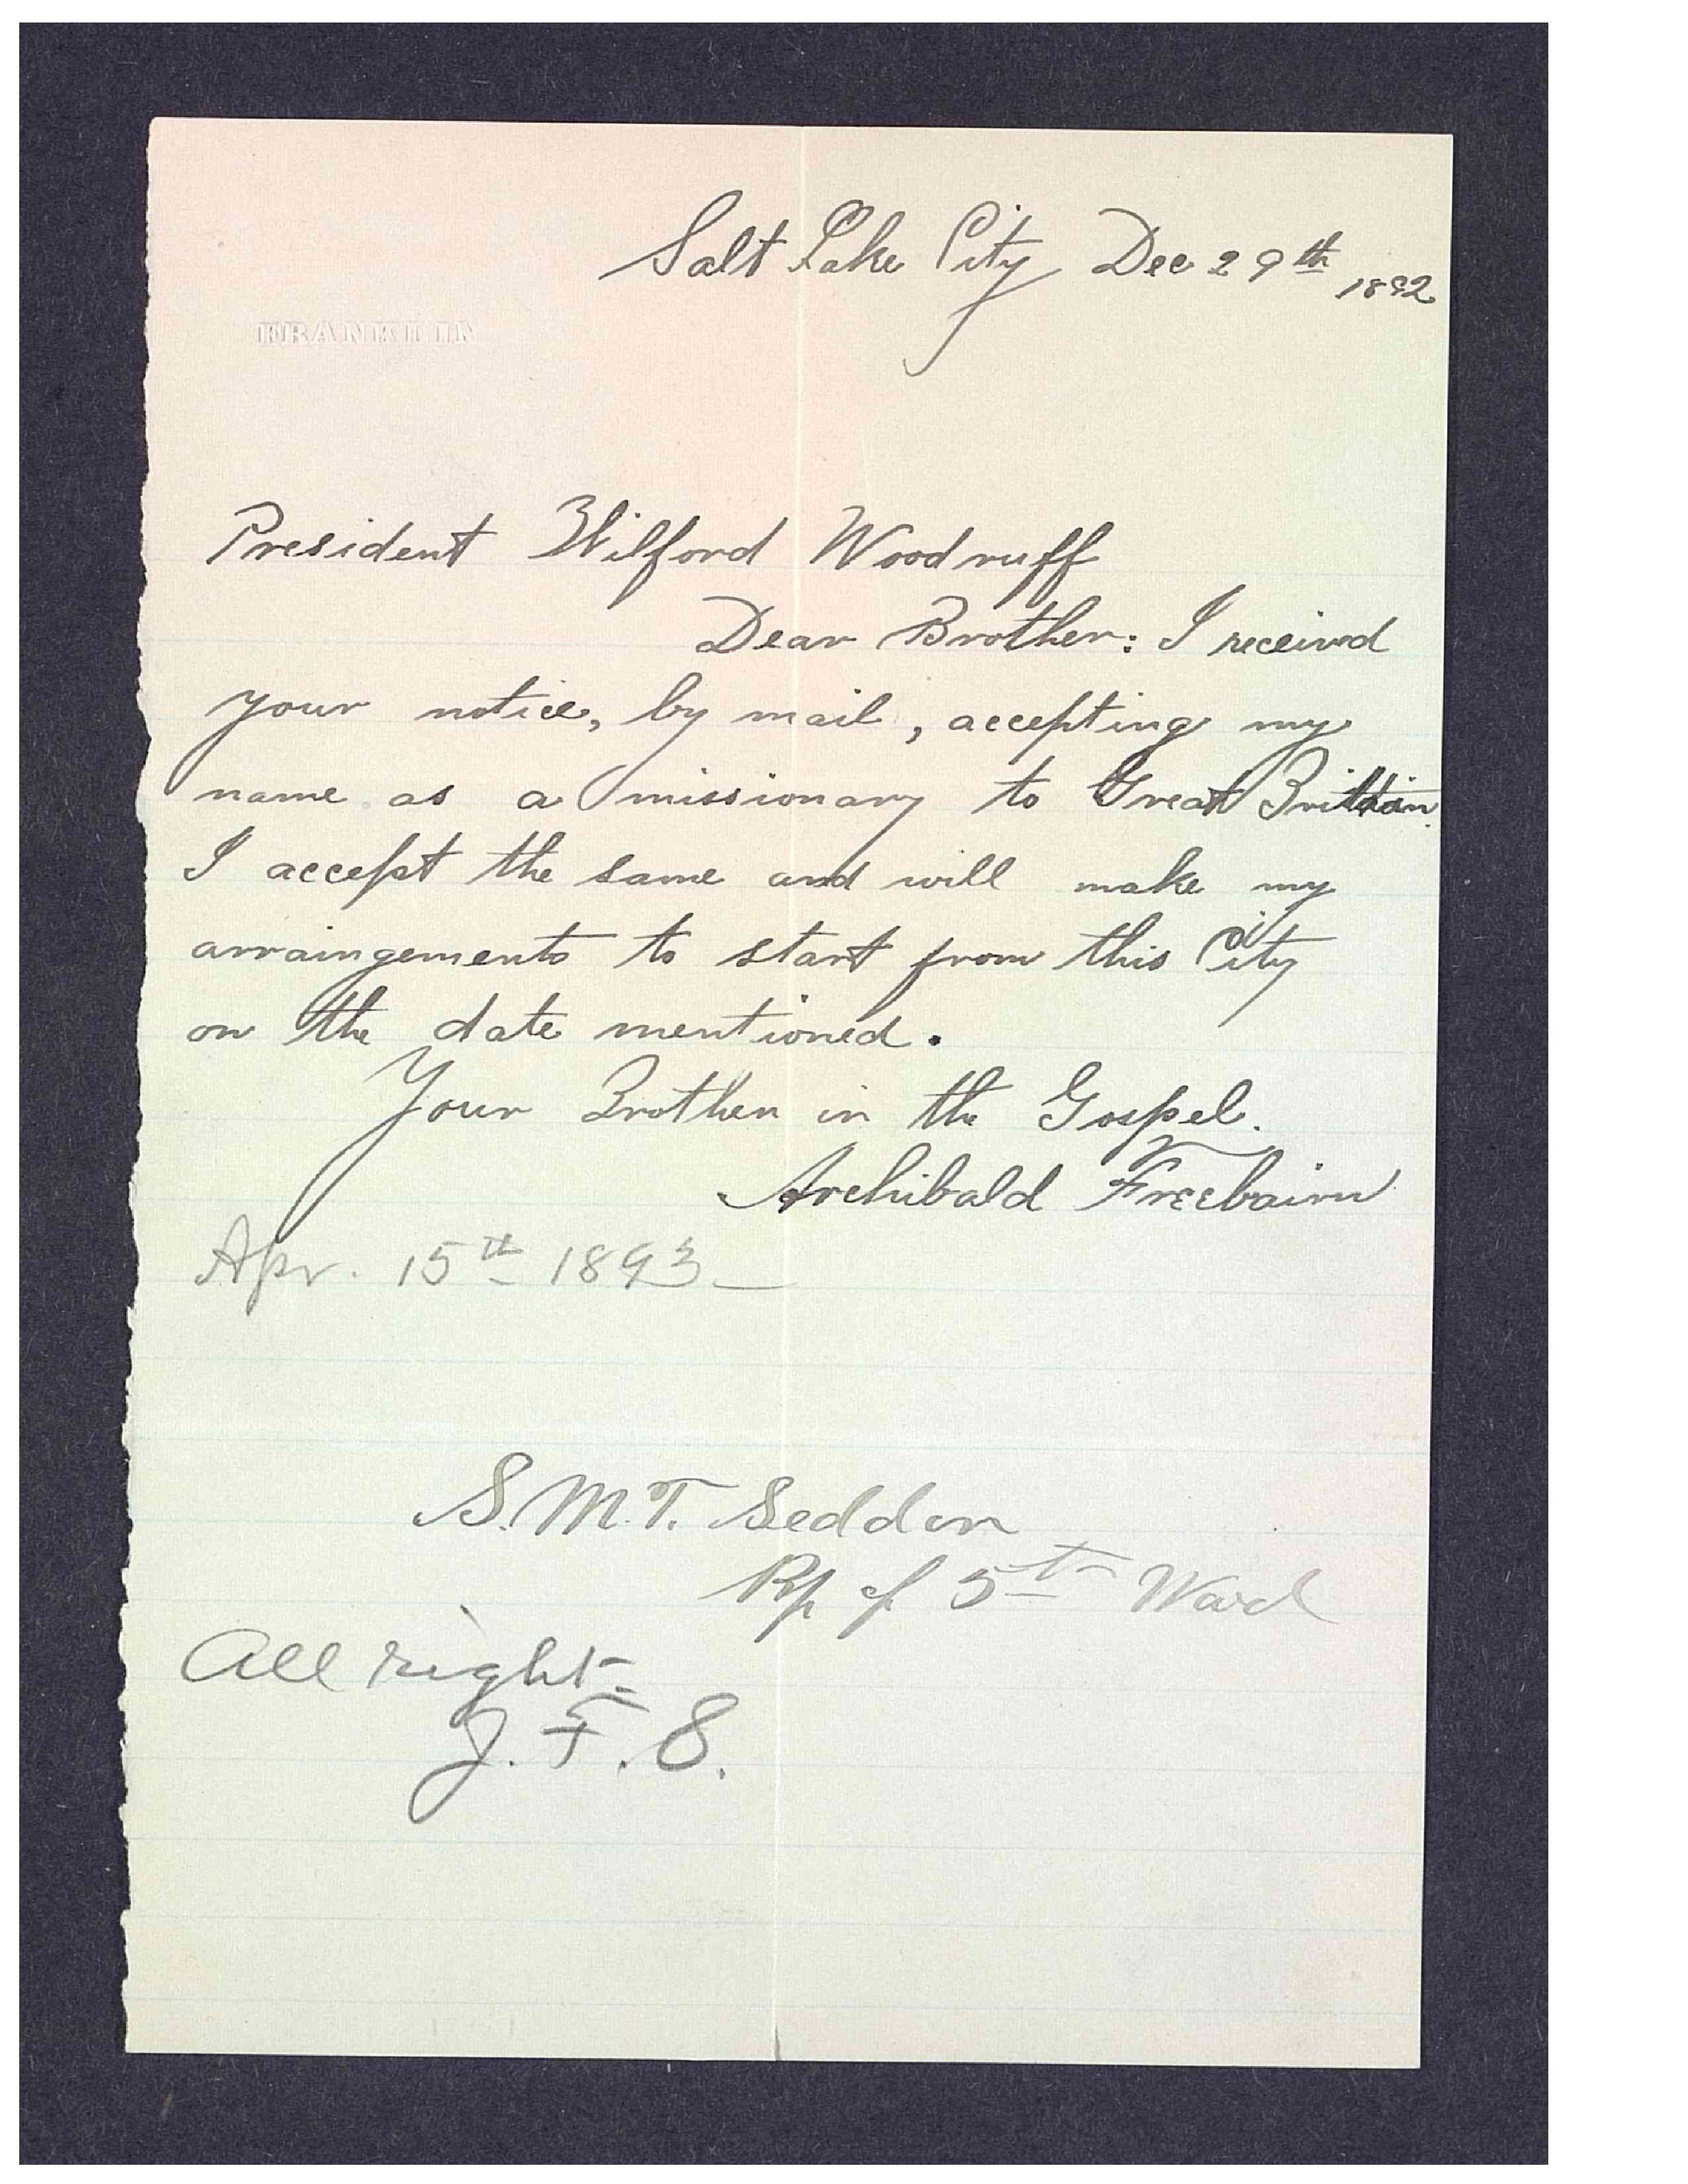 Salt Lake City Dec 29th 1892
FRANKLIN
President Wilford Woodruff
Dear Brother: I received
your notice, by mail, accepting my
name as a missionary to Great Brittian.
I accept the same and will make my
arraingements to start from this City
on the date mentioned.
Your Brother in the Gospel.
Archibald Freebairn
Apr. 15th 1893
S. M. T. Seddon
Bp of 5th Ward
All right
J. F. S.